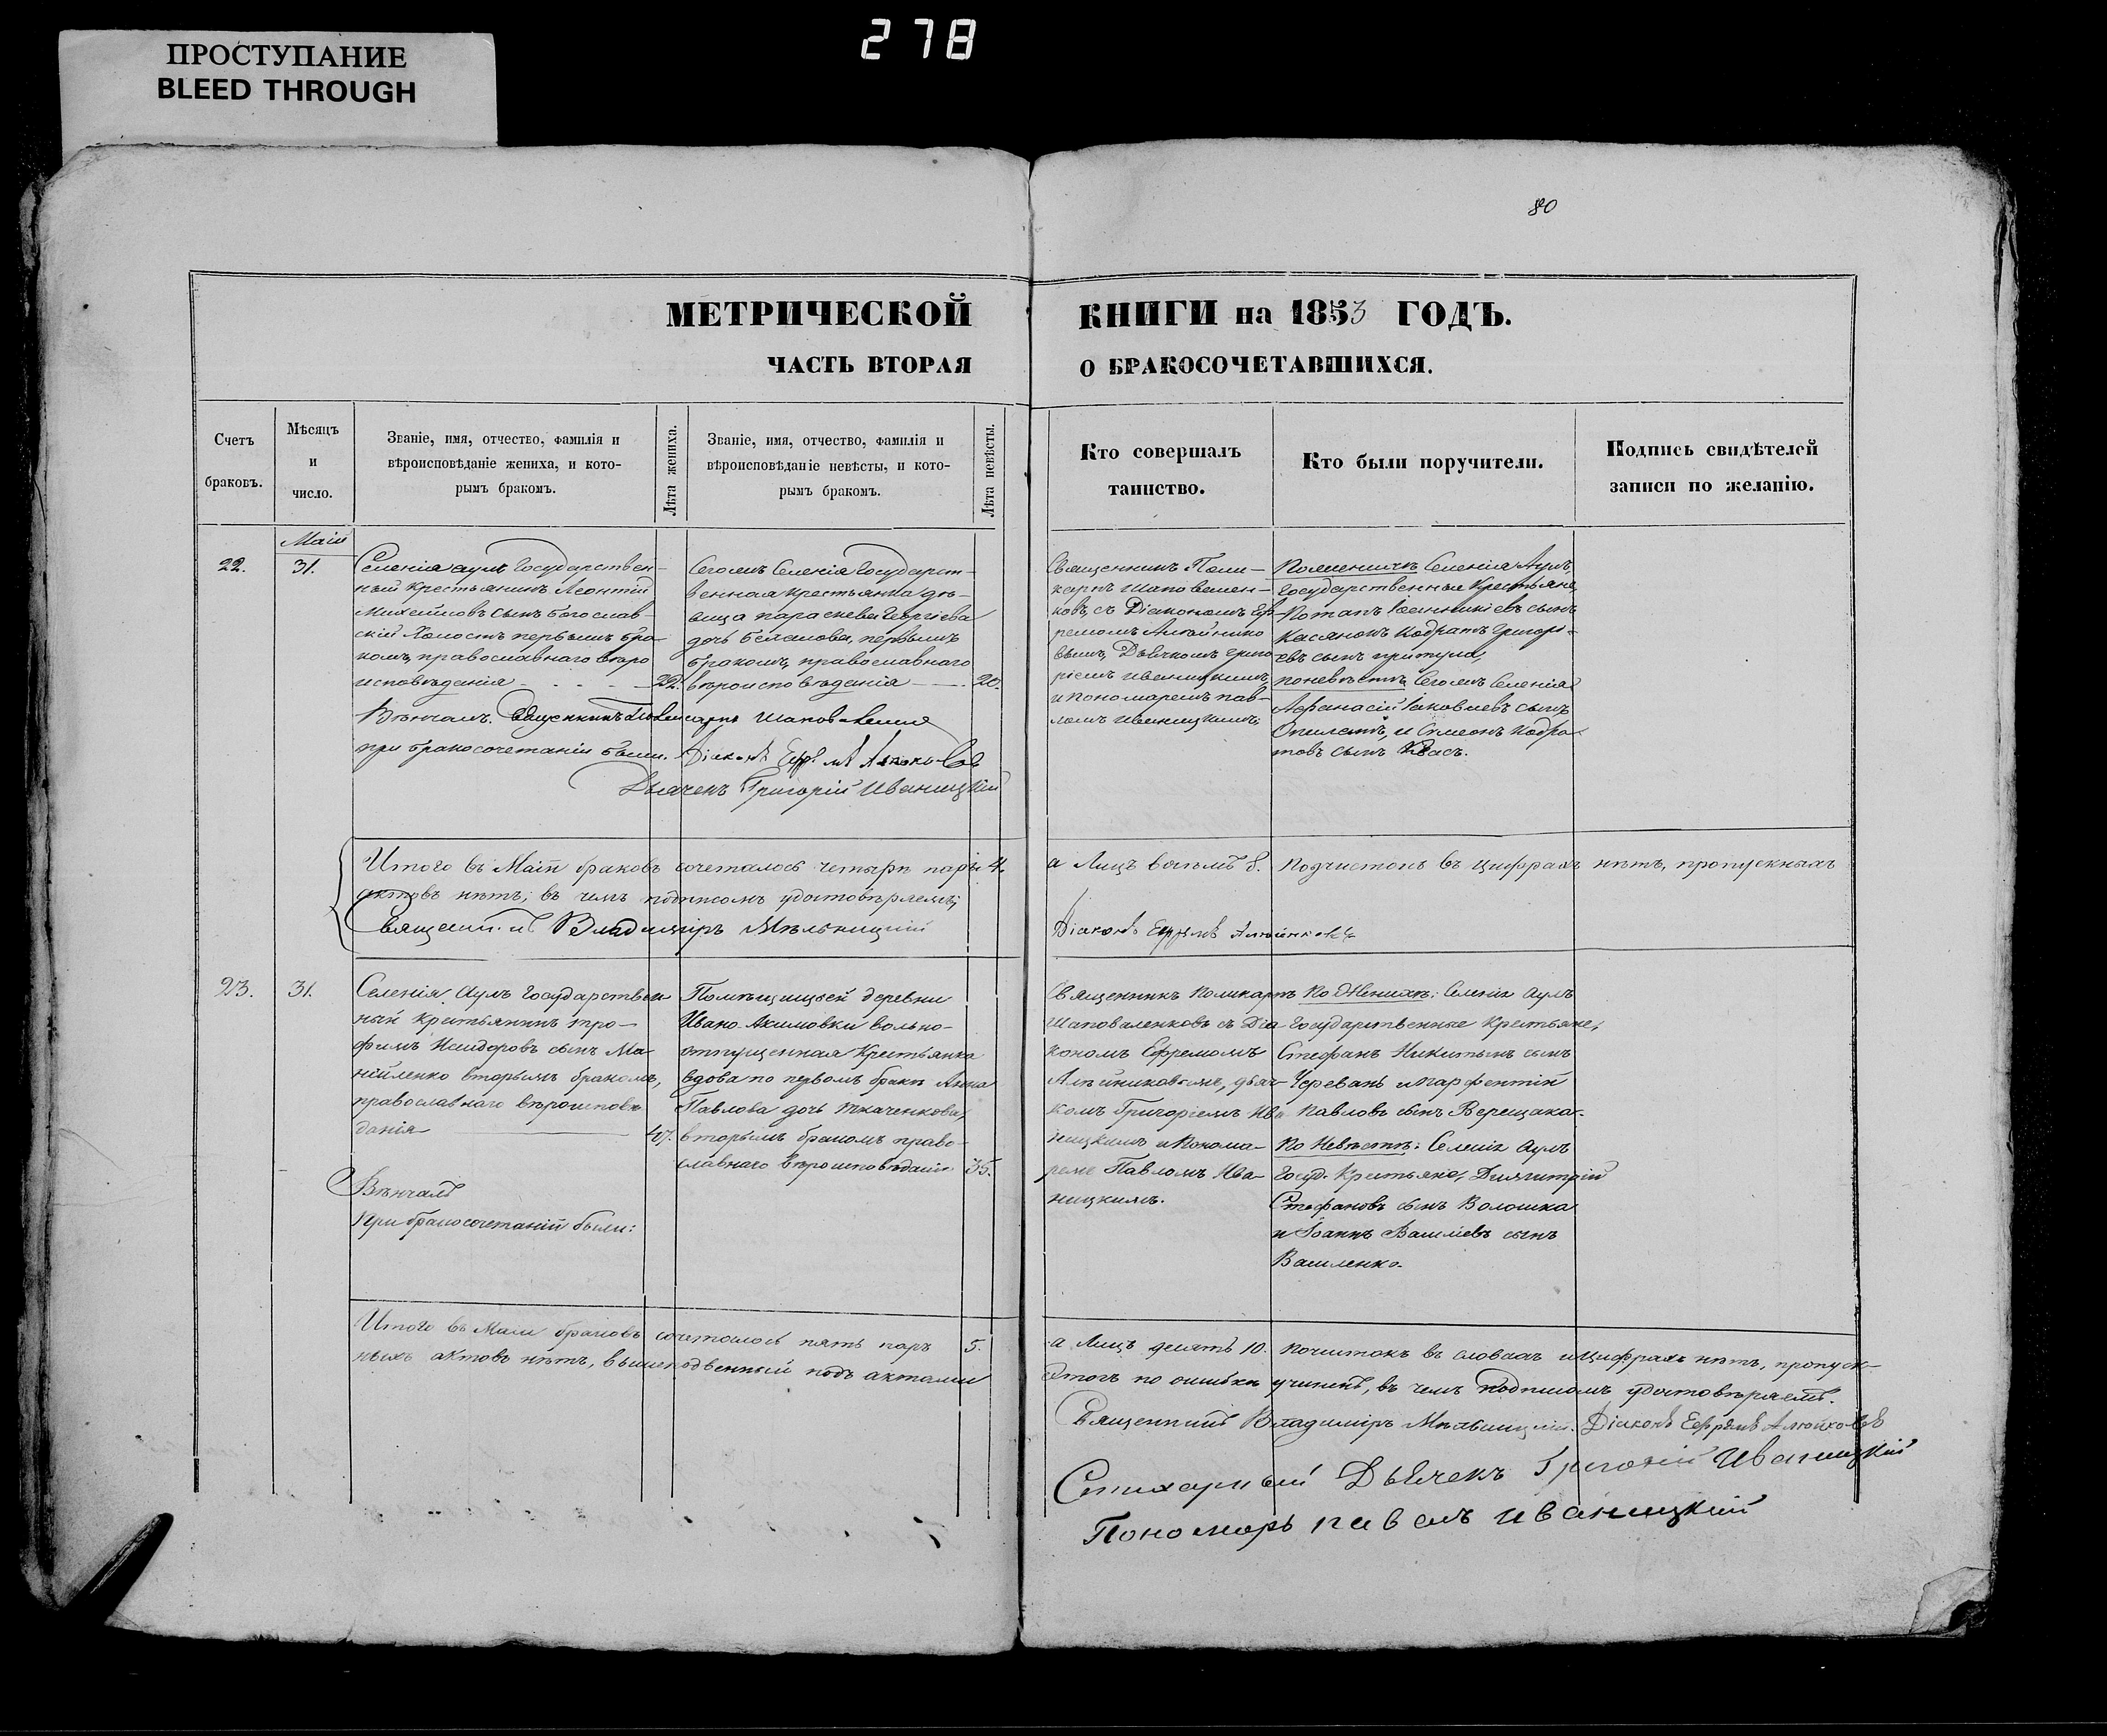 ПРОСТУПАНИЕ
BLEED THROUGH
278
80
МЕТРИЧЕСКОЙ КНИГИ на 1853 ГОДЪ.
ЧАСТЬ ВТОРАЯ О БРАКОСОЧЕТАВШИХСЯ.
Счетъ
браковъ.
Мѣсяцъ
и
число.
Званіе, имя, отчество, фамилія и
вѣроисповѣданіе жениха, и кото-
рымъ бракомъ.
Лѣта жениха.
Званіе, имя, отчество, фамилія и
вѣроисповѣданіе невѣсты, и кото-
рымъ бракомъ.
Лѣта невѣсты.
Кто совершалъ
таинство.
Кто были поручители.
Подпись свидѣтелей
записи по желанію.
Маій
22.
31.
Селенія аулъ Государствен-
ный крестьянинъ Леонтій
сынъ Богослав
скій Холостъ первымъ бра
комъ, православнаго вѣро
исповѣданія
22.
Селенія Государст-
венная крестьянка дѣ-
вица Параскева Георгіева
дочь первымъ
бракомъ, православнаго
вѣроисповѣданія
20.
Вѣнчалъ.
при бракосочетаніи были. Діаконъ
Дьячекъ Григорій Иваницкій
Священникъ Поли-
карпъ Шаповален-
ковъ, съ Діакономъ Еф-
ремомъ Алѣйнико
вымъ, Дьячкомъ Григо
ріемъ Иваницкимъ,
и пономаремъ Пав-
ломъ Иваницкимъ.
Селенія Аулъ,
Государственные Крестьяне,
Потапъ Іоанникіевъ сынъ
Касянокъ Кодратъ Григорі-
евъ сынъ Притула,
по невѣстѣ Селенія
Афанасій Іаковлевъ сынъ
и Симеонъ Кодра
товъ сынъ Квасъ.
Итого въ Маіи браковъ сочеталось четыре пары 4. а Лицъ восемь 8. Подчистокъ въ цифрахъ нѣтъ, пропускныхъ
актовъ нѣтъ, въ чемъ подписомъ удостовѣряемъ;
Владиміръ Мѣльницкій
Діаконъ Ефремъ
23.
31.
Селенія Аулъ Государствен-
ный крестьянинъ Тро-
фимъ Исидоровъ сынъ Ма-
нійленко вторымъ бракомъ,
православнаго вѣроисповѣ
данія
47.
Помѣщицьей деревни
Ивано Акимовки вольно-
отпущенная Крестьянка
вдова по первомъ бракѣ Анна
Павлова дочь Ткаченкова,
вторымъ бракомъ право-
славнаго вѣроисповѣданія
35.
Вѣнчалъ
При бракосочетаніи были:
Священникъ Поликарпъ
Шаповаленковъ съ Діа-
кономъ Ефремомъ
Алѣйниковымъ, дьяч-
комъ Григоріемъ Ива
ницкимъ и Понома-
ремъ Павломъ Ива-
ницкимъ.
По Женихѣ: Селенія Аулъ
Государственные Крестьяне,
Стефанъ Никитинъ сынъ
Черевань и Парфентій
Павловъ сынъ Верещака.
По Невѣстѣ: Селенія Аулъ
Госуд. Крестьяне, Димитрій
Стефановъ сынъ Волошка
и Іоаннъ Василіевъ сынъ
Василенко.
Итого въ Маіи браковъ сочеталось пять паръ 5. а Лицъ десять 10. Почистокъ въ словахъ и цифрахъ нѣтъ, пропуск-
ныхъ актовъ нѣтъ, подъ актами итогъ по ошибкѣ учиненъ, въ чемъ подписомъ удостовѣряемъ.
Священникъ Владиміръ Мѣльницкій. Діаконъ Ефремъ
Стихарный Дьячекъ Григорій Иваницкій
Пономарь Павелъ Иваницкій